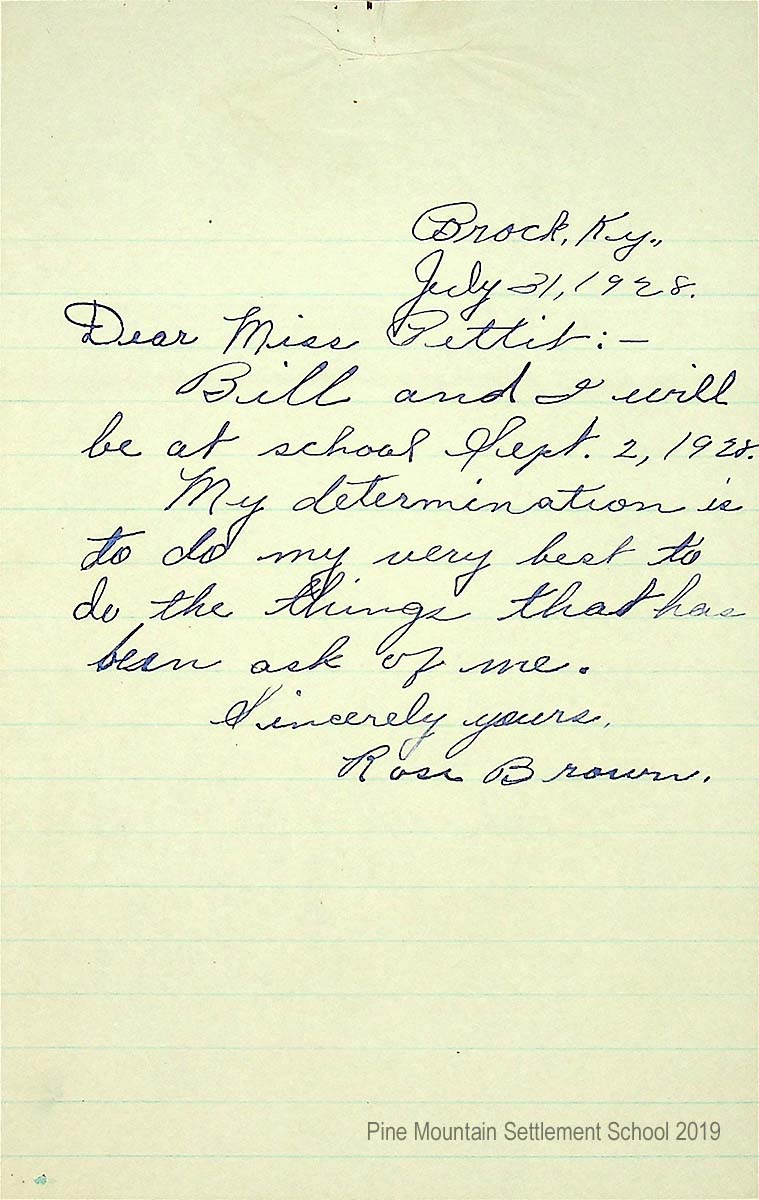 Brock, Ky.,
July 31, 1928.
Dear Miss Pettit:-
Bill and I will
be at school Sept. 2, 1928.
My determination is
to do my very best to
do the things that has
been ask of me.
Sincerely yours,
Rose Brown.
Pine Mountain Settlement School 2019